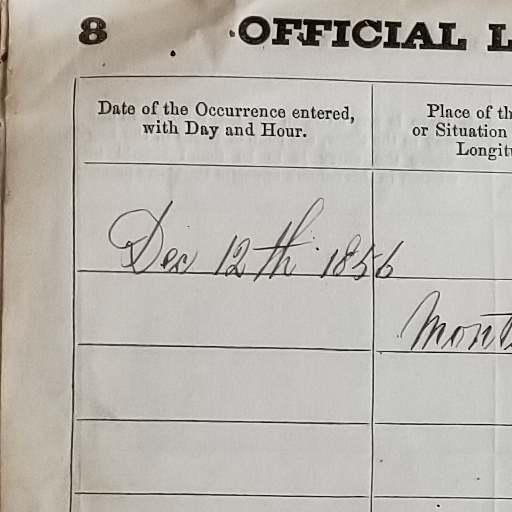 8 OFFICIAL L
Date of the Occurrence entered,
with Day and Hour.
Place of th
or Situation
Longit
Dec 12th 1856
Mont